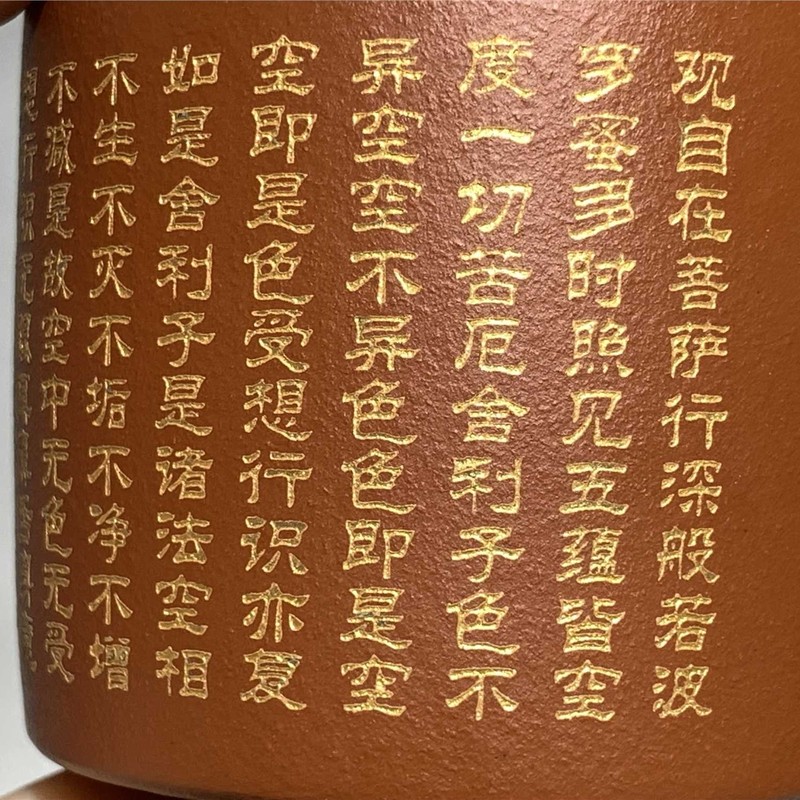 观自在菩萨行深般若波
罗蜜多时照见五蕴皆空
度一切苦厄舍利子色不
异空空不异色色即是空
空即是色受想行识亦复
如是舍利子是诸法空相
不生不灭不垢不净不增
不减是故空中无色无受
想行识无眼耳鼻舌身意